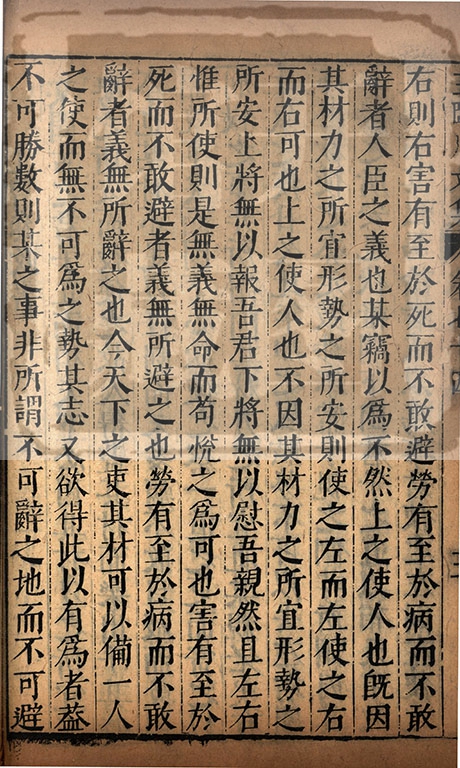 右則右害有至於死而不敢避勞有至於病而不敢
辭者人臣之義也某竊以爲不然上之使人也旣因
其材力之所宜形勢之所安則使之左而左使之右
而右可也上之使人也不因其材力之所宜形勢之
所安上將無以報吾君下將無以慰吾親然且左右
惟所使則是無義無命而苟悅之爲可也害有至於
死而不敢避者義無所避之也勞有至於病而不敢
辭者義無所辭之也今天下之吏其材可以備一人
之使而無不可爲之勢其志又欲得此以有爲者葢
不可勝數則某之事非所謂不可辭之地而不可避